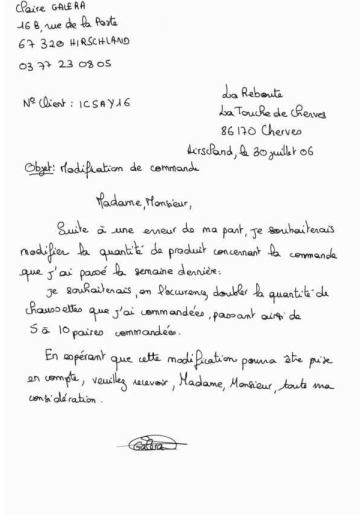 Claire GALERA
16 B, rue de la Poste
67 320 HIRSCHLAND
03 77 23 08 05
N° Client : ICSAY16
La Reboute
La Touche de Cherves
86170 Cherves
Hirschland, le 30 juillet 06
Objet: Modification de commande
Madame, Monsieur,
Suite à une erreur de ma part, je souhaiterais
modifier la quantité de produit concernant la commande
que j'ai passé la semaine dernière.
Je souhaiterais, en l'occurence, doubler la quantité de
chaussettes que j'ai commandées, passant ainsi de
5 à 10 paires commandées.
En espérant que cette modification pourra être prise
en compte, veuillez recevoir, Madame, Monsieur, toute ma
considération.
Galera